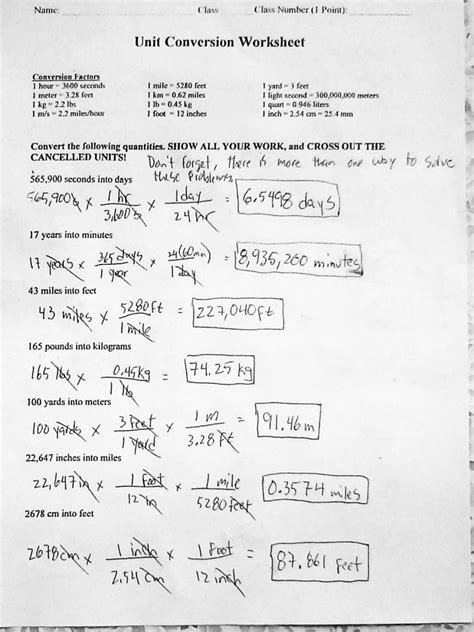 Name: Class Class Number (1 Point):
Unit Conversion Worksheet
Conversion Factors
1 hour = 3600 seconds 1 mile = 5280 feet 1 yard = 3 feet
1 meter = 3.28 feet 1 km = 0.62 miles 1 light second = 300,000,000 meters
1 kg = 2.2 lbs 1 lb = 0.45 kg 1 quart = 0.946 liters
1 m/s = 2.2 miles/hour 1 foot = 12 inches 1 inch = 2.54 cm = 25.4 mm
Convert the following quantities. SHOW ALL YOUR WORK, and CROSS OUT THE
CANCELLED UNITS! Don't forget, there is more than one way to solve
these problems.
565,900 seconds into days
565,900 s × 1 hr / 3,600 s × 1 day / 24 hr = 6.5498 days
17 years into minutes
17 years × 365 days / 1 year × 24(60min) / 1 day = 8,935,200 minutes
43 miles into feet
43 miles × 5280 ft / 1 mile = 227,040 ft
165 pounds into kilograms
165 lbs × 0.45 kg / 1 lb = 74.25 kg
100 yards into meters
100 yards × 3 feet / 1 yard × 1 m / 3.28 ft = 91.46 m
22,647 inches into miles
22,647 in × 1 foot / 12 in × 1 mile / 5280 feet = 0.3574 miles
2678 cm into feet
2678 cm × 1 inch / 2.54 cm × 1 foot / 12 inch = 87.861 feet